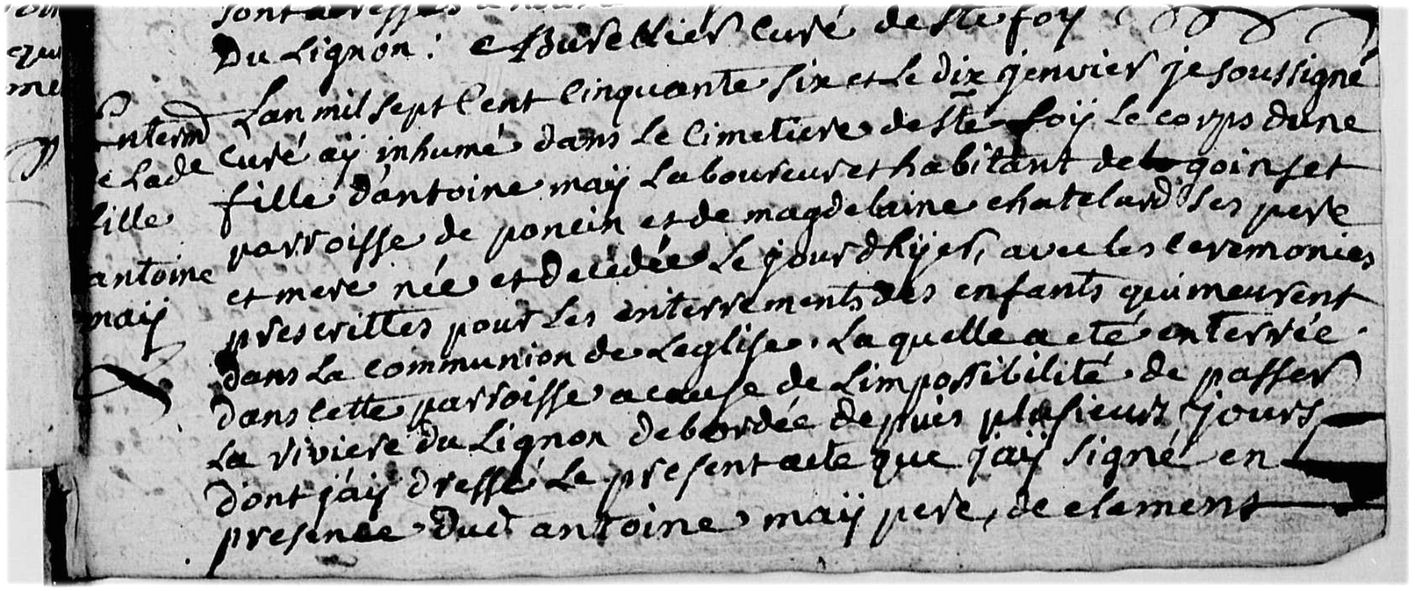 sont adressés
Du Lignon : Burellier Curé de ste foy
Lan mil sept Cent Cinquante six et Le dix jenvier je soussigné
Curé aÿ inhumé dans Le Cimetiere de ste foÿ Le corps dune
fille d'antoine maÿ Laboureur et habitant de goinset
parroisse de poncin et de magdelaine chatelard Ses pere
et mere née et decedée Le jour d'hÿer, avec les Ceremonies
prescrittes pour Les enterrements des enfants qui meurent
dans La communion de Leglise, Laquelle a eté enterrée
dans cette parroisse a cause de Limpossibilité de passer
La riviere du Lignon debordée depuis plusieurs jours
dont j'aÿ dressé Le present acte que j'aÿ signé en
presence dud antoine maÿ pere, de clement
interm
e Lade
fille
antoine
maÿ